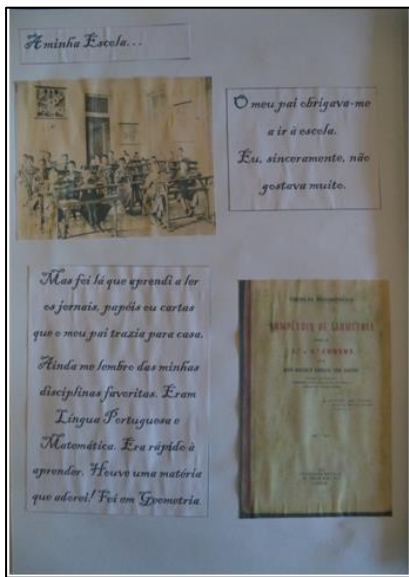 A minha Escola...
O meu pai obrigava-me
a ir à escola.
Eu, sinceramente, não
gostava muito.
Mas foi lá que aprendi a ler
os jornais, papéis ou cartas
que o meu pai trazia para casa.
Ainda me lembro das minhas
disciplinas favoritas. Eram
Língua Portuguesa e
Matemática. Era rápido à
aprender. Houve uma matéria
que adorei! Foi em Geometria.
COMPÊNDIO DE GEOMETRIA